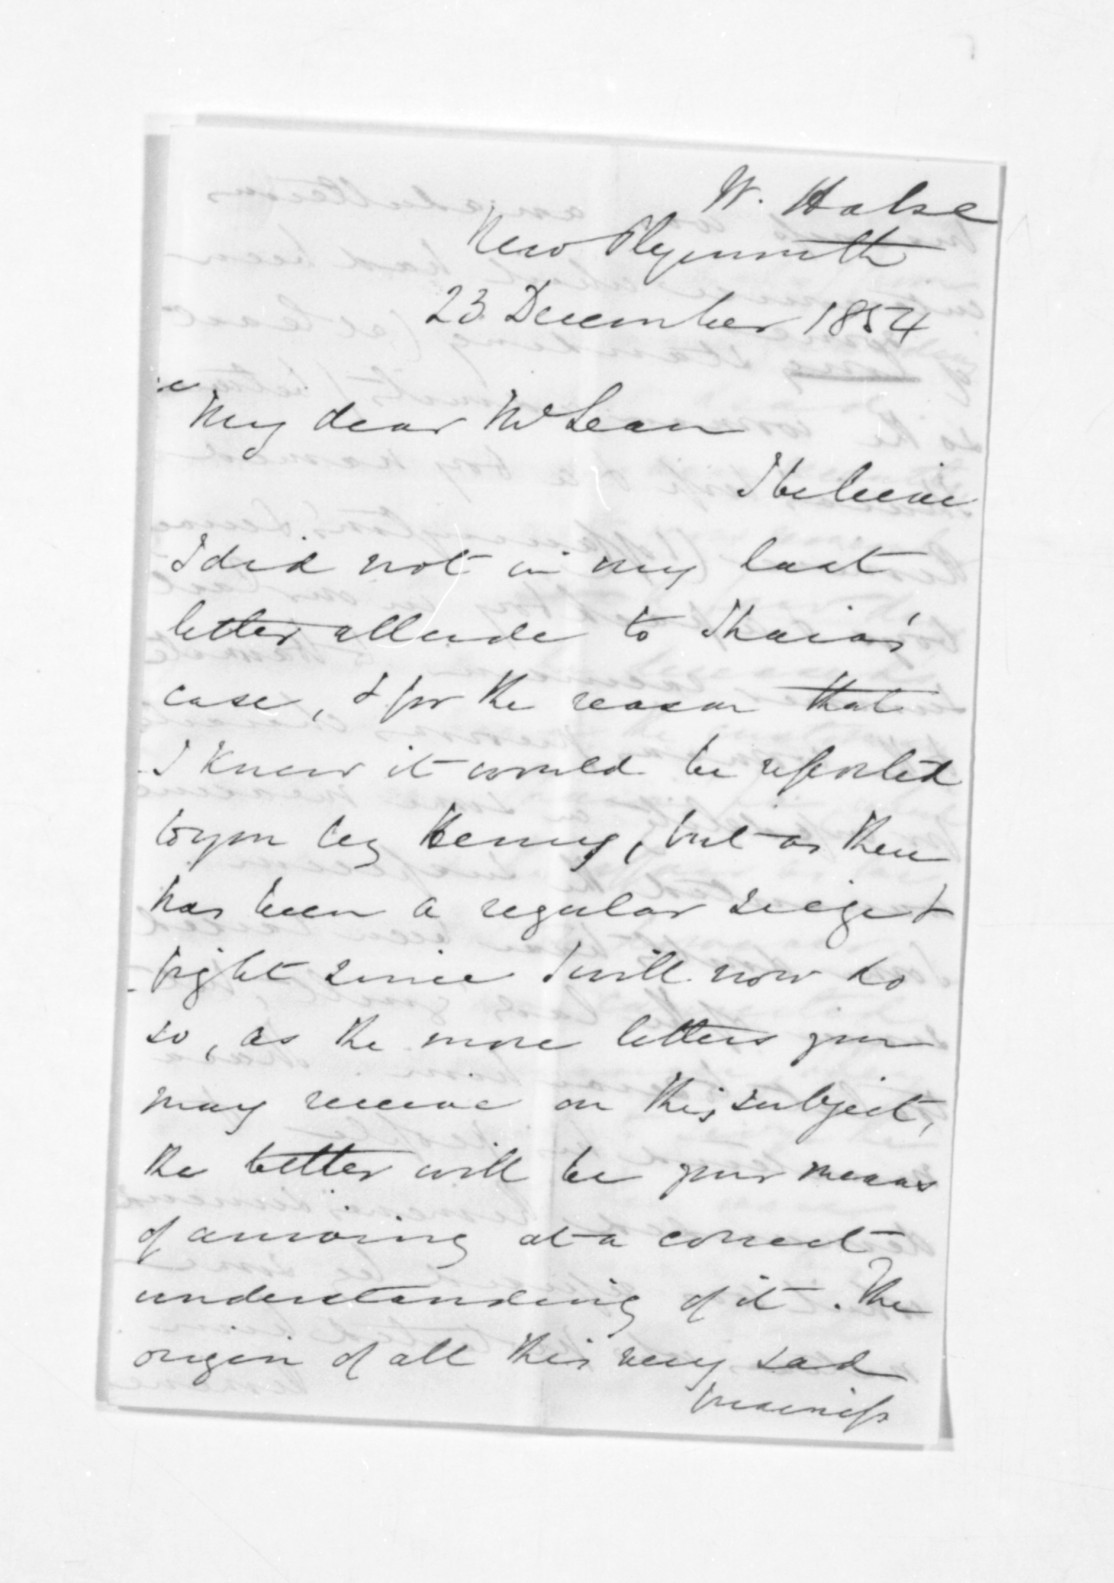 W. Halse
New Plymouth
23 December 1854
My dear McLean
I believe
I did not in my last
letter allude to Ihaia's
case, & for the reason that
I knew it would be reported
to you by Henry, but as there
has been a regular siege &
fight since I will now do
so, as the more letters you
may receive on this subject,
the better will be your means
of arriving at a correct
understanding of it. The
origin of all this very sad
business